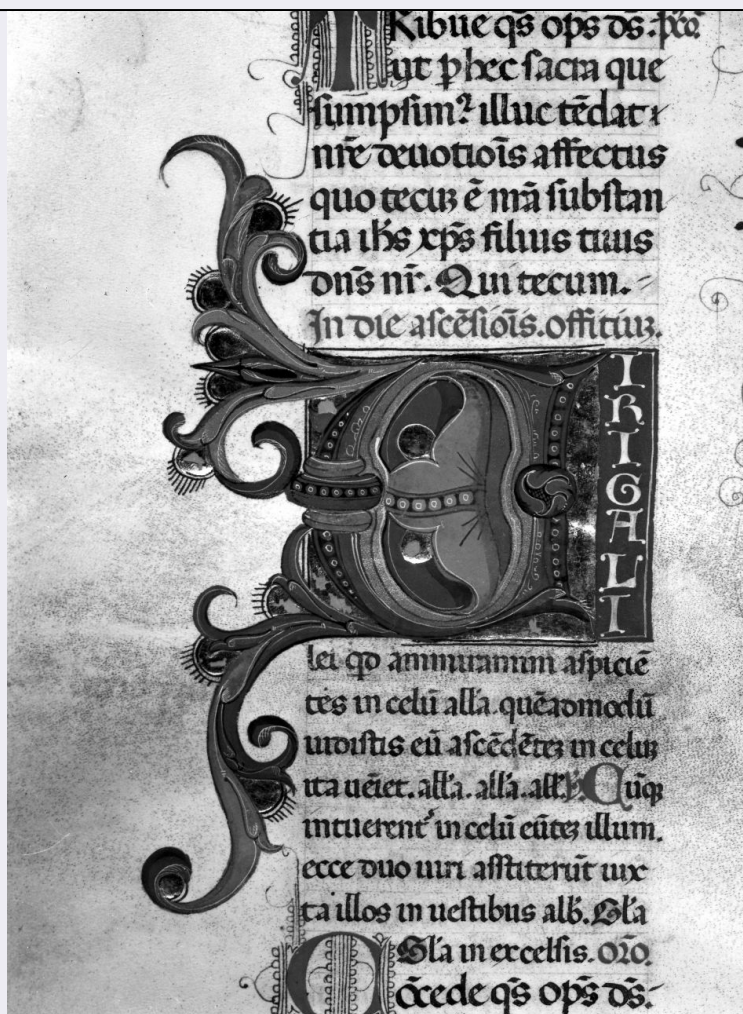 Ribue q̄s op̄s d̄s. p̄cor
ut p hec sacra que
sumpsim⁊ illuc tēdat
nr̄e deuotiōis affectus
quo tecuȝ ē nr̄a substan
tia ih̄s xp̄s filius tuus
dn̄s nr̄. Qui tecum.
In die ascēsiōis. offitiuȝ.
V
IRI GALI
lei qd ammiramini aspiciē
tes in celū all'a. quēadmodū
uidistis eū ascēdētēȝ in celuȝ
ita ueiet. all'a. all'a. all'. Cūqȝ
intuerent' in celū eūteȝ illum.
ecce duo uiri astiterūt iux
ta illos in uestibus alb. Gl'a
Gl'a in excelsis. or̄o.
C
ōcede q̄s op̄s d̄s.